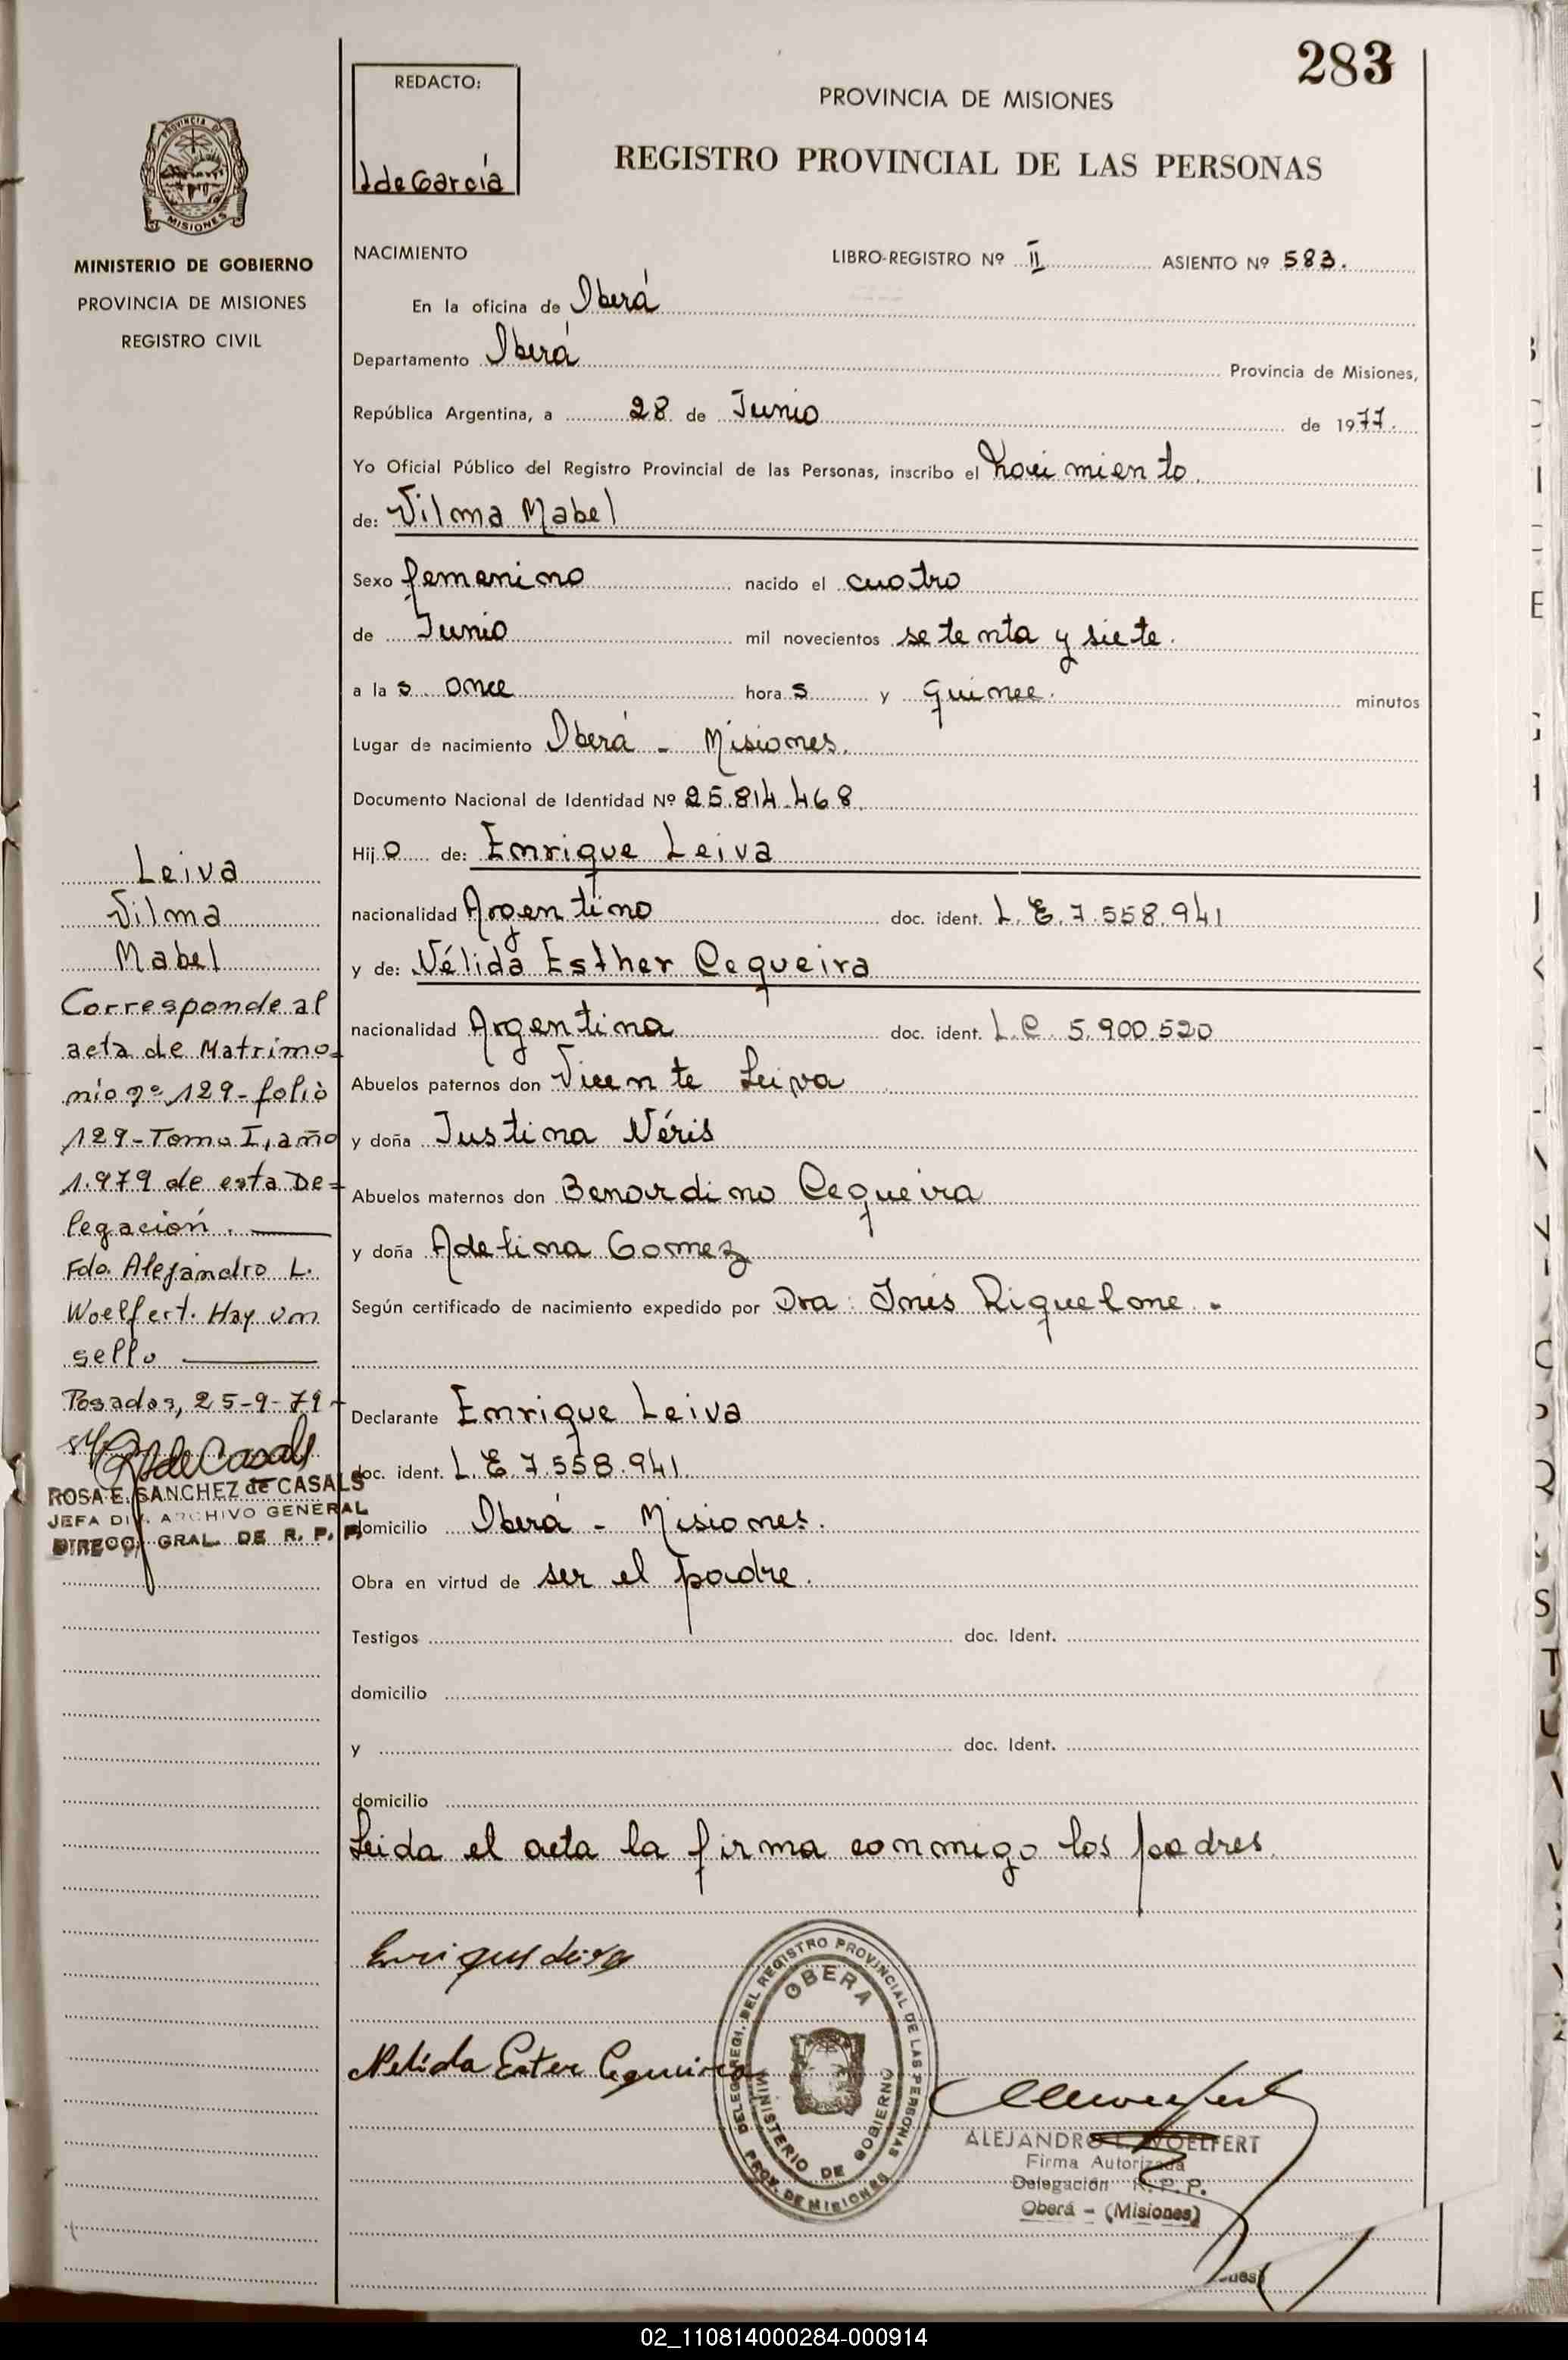 283
REDACTO:
I de García
PROVINCIA DE MISIONES
REGISTRO PROVINCIAL DE LAS PERSONAS
PROVINCIA DE
MISIONES
MINISTERIO DE GOBIERNO
PROVINCIA DE MISIONES
REGISTRO CIVIL
NACIMIENTO
LIBRO-REGISTRO Nº II ASIENTO Nº 583.
En la oficina de Oberá
Departamento Oberá Provincia de Misiones,
República Argentina, a 28 de Junio de 1977.
Yo Oficial Público del Registro Provincial de las Personas, inscribo el Nacimiento
de: Vilma Mabel
Sexo femenino nacido el cuatro
de Junio mil novecientos setenta y siete.
a la s once hora s y quince. minutos
Lugar de nacimiento Oberá - Misiones.
Documento Nacional de Identidad Nº 25.814.468
Hij o de: Enrique Leiva
nacionalidad Argentino doc. ident. L. E. 7.558.941
y de: Nélida Esther Cequeira
nacionalidad Argentina doc. ident. L.C. 5.900.520
Abuelos paternos don Vicente Leiva
y doña Justina Néris
Abuelos maternos don Benardino Cequeira
y doña Adelina Gomez
Según certificado de nacimiento expedido por Dra. Inés Riquelme. -
Declarante Enrique Leiva
doc. ident. L. E. 7.558.941
domicilio Oberá - Misiones.
Obra en virtud de ser el padre.
Testigos doc. Ident.
domicilio
y doc. Ident.
domicilio
Leida el acta la firma conmigo los padres.
Enrique Leiva
Nelida Ester Cequeira
DELEG. REGI. DEL REGISTRO PROVINCIAL DE LAS PERSONAS
OBERA
MINISTERIO DE GOBIERNO
PROV. DE MISIONES
ALEJANDRO L. WOELFERT
Firma Autorizada
Delegación R. P. P.
Oberá - (Misiones)
Leiva
Vilma
Mabel
Corresponde al
acta de Matrimo=
nio nº 129- folio
129-Tomo I, año
1.979 de esta De=
legación.
Fdo. Alejandro L.
Woelfert. Hay un
sello
Posadas, 25-9-79-
ROSA E. SANCHEZ de CASALS
JEFA DIV. ARCHIVO GENERAL
DIRECC. GRAL. DE R. P. P.
02_110814000284-000914